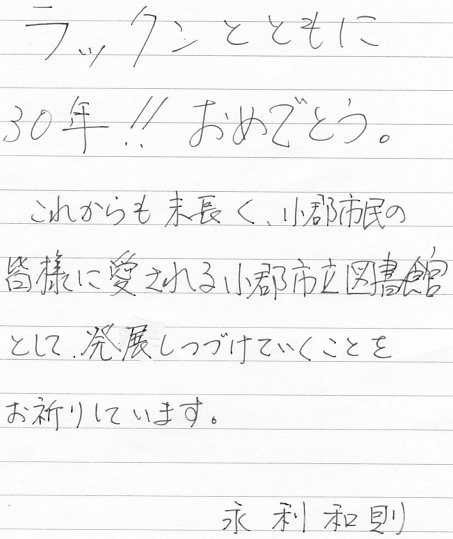 ラックンとともに
30年!! おめでとう。
これからも末長く、小郡市民の
皆様に愛される小郡市立図書館
として、発展しつづけていくことを
お祈りしています。
永利和則